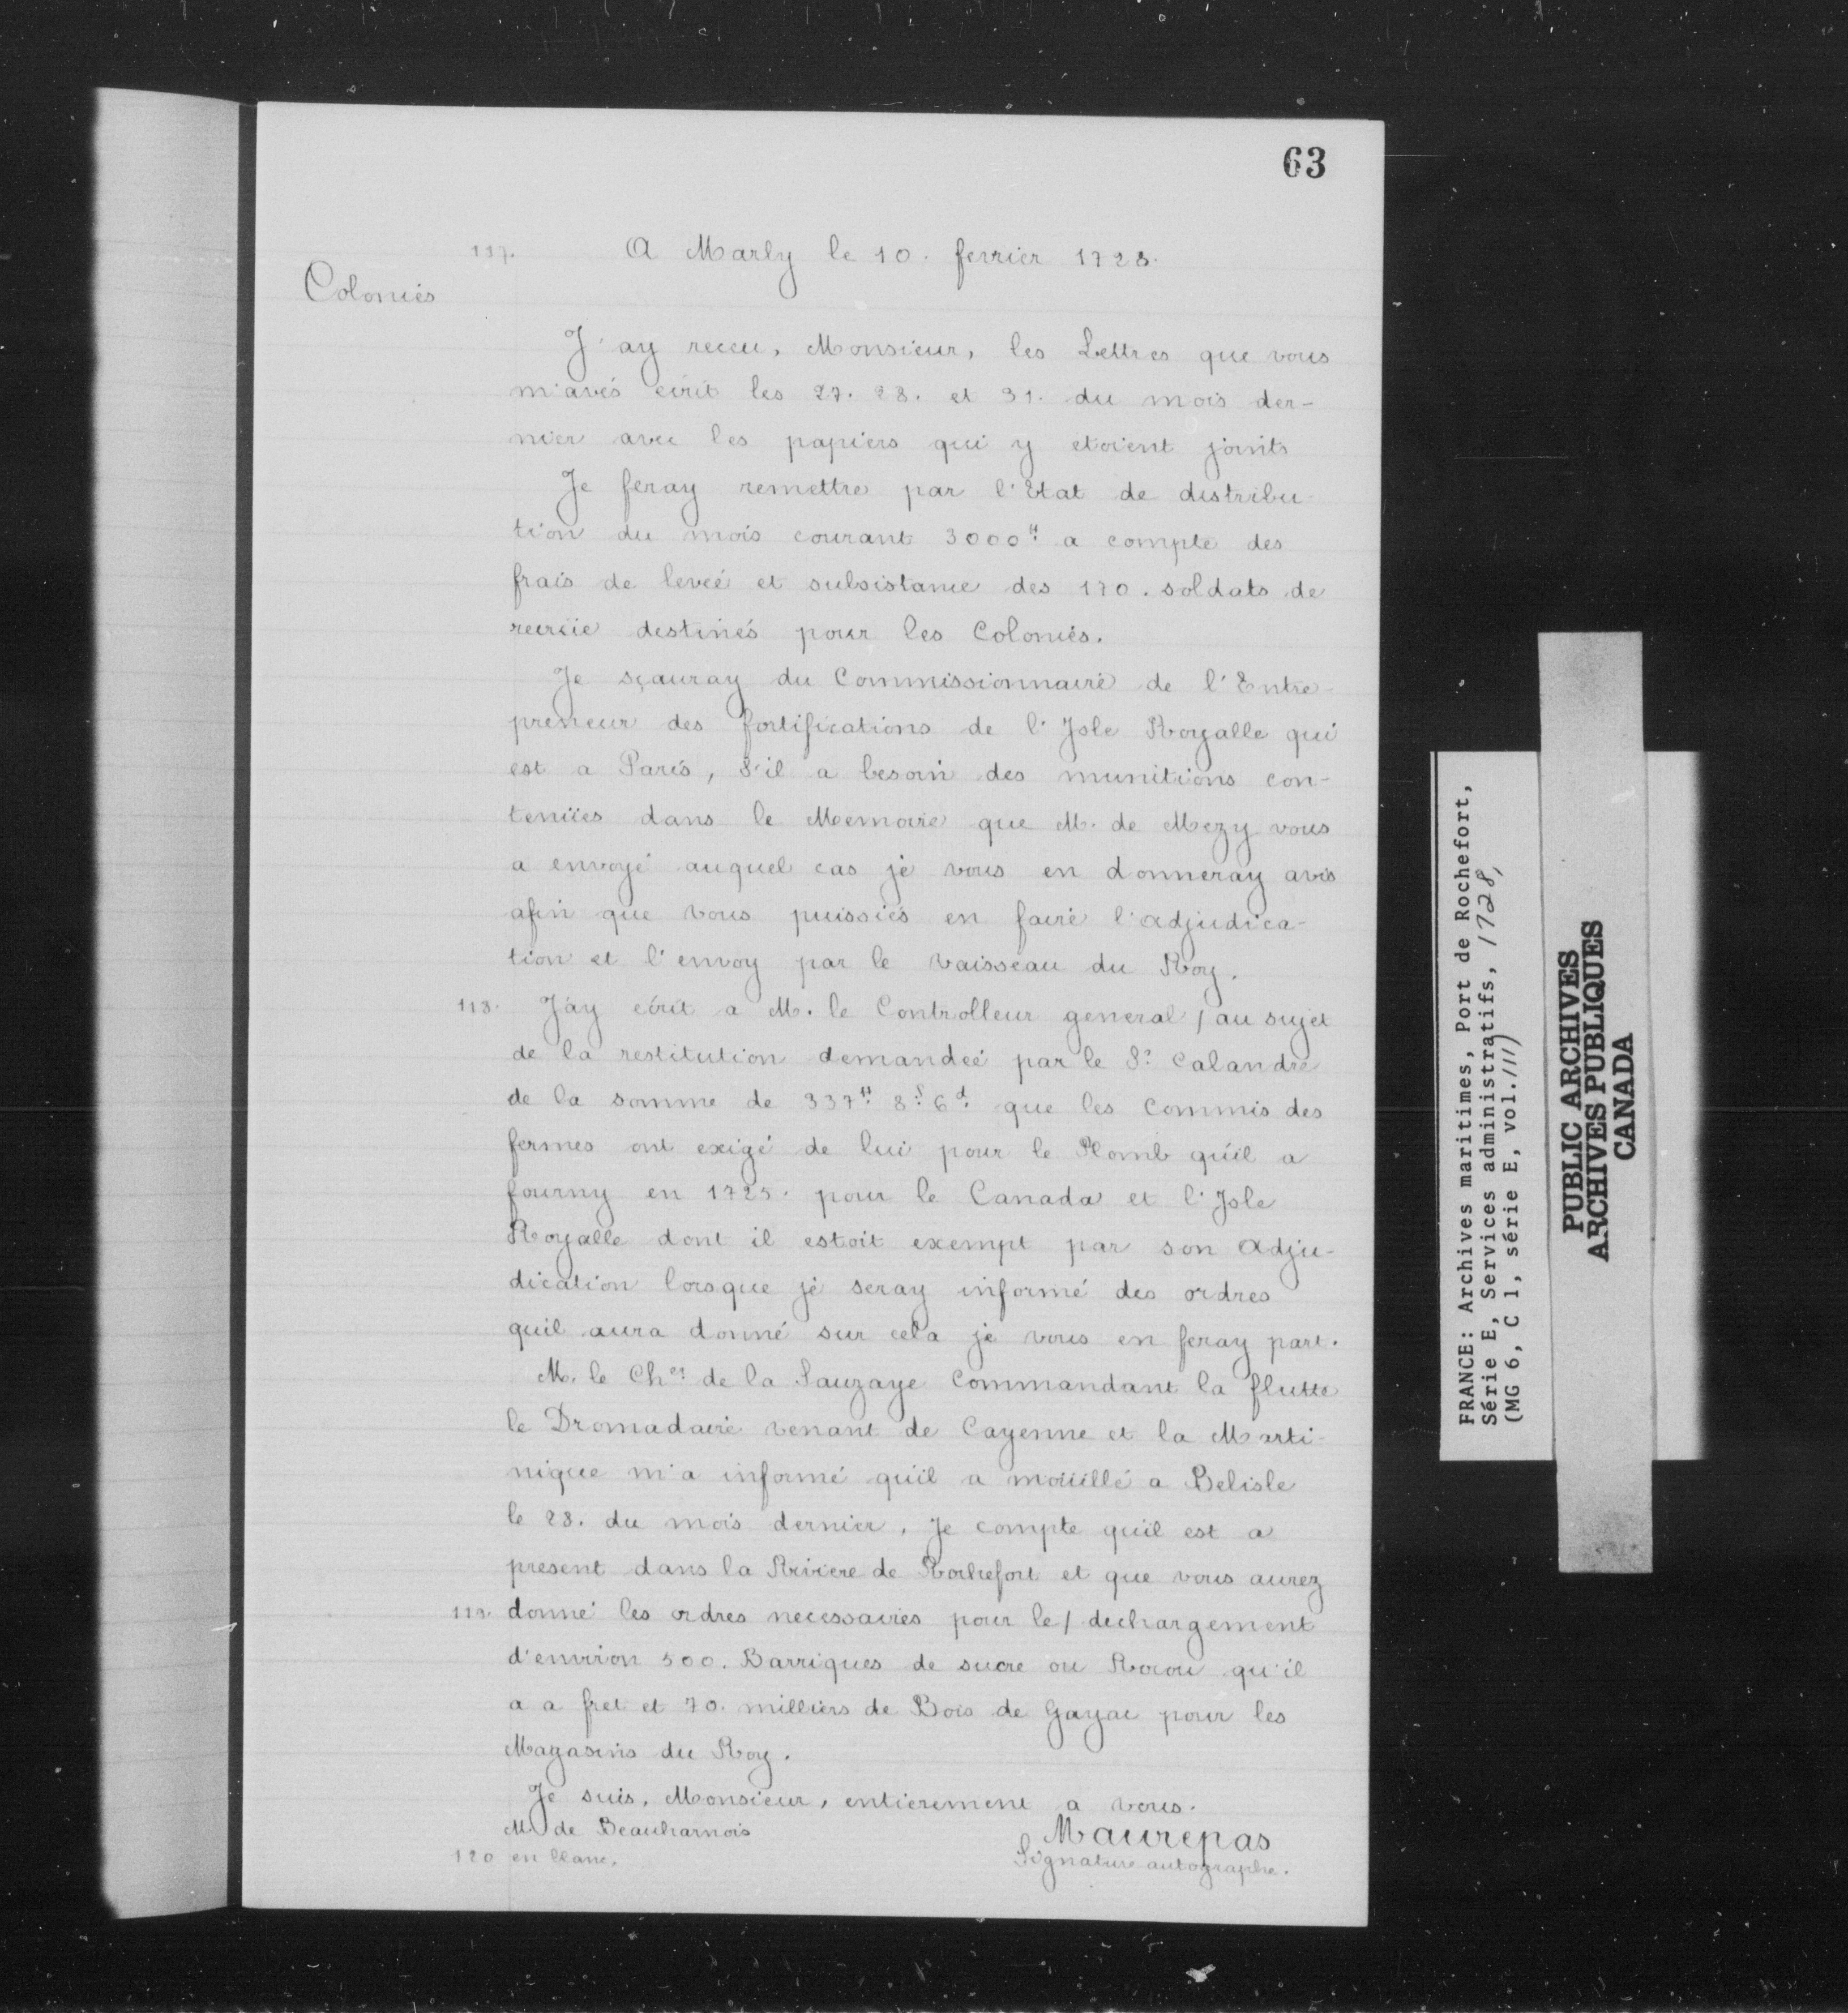 63
117. A Marly le 10. fevrier 1728.
Colonies
J'ay receu, Monsieur, les Lettres que vous
m'avés écrit les 27. 28. et 31. du mois der-
nier avec les papiers qui y etoient joints
Je feray remettre par l'Etat de distribu
tion du mois courant 3000ᵗᵗ a compte des
frais de leveé et subsistance des 170. soldats de
recrüe destinés pour les Colonies.
Je sçauray du Commissionnaire de l'Entre-
preneur des fortifications de l'Isle Royalle qui
est a Paris, S'il a besoin des munitions con-
tenües dans le Memoire que M. de Mezy vous
a envoyé auquel cas je vous en donneray avis
afin que vous puissiés en faire l'adjudica-
tion et l'envoy par le vaisseau du Roy.
118. J'ay écrit a M. le Controlleur general / au sujet
de la restitution demandeé par le Sʳ. Calandre
de la somme de 337ᵗᵗ. 8ˢ. 6ᵈ. que les Commis des
fermes ont exigé de lui pour le Plomb qu'il a
fourny en 1725. pour le Canada et l'Isle
Royalle dont il estoit exempt par son adju-
dication lorsque je seray informé des ordres
quil aura donné sur cela je vous en feray part.
M. le Chᵉʳ. de la Sauzaye Commandant la flutte
le Dromadaire venant de Cayenne et la Marti-
nique m'a informé qu'il a moüillé a Belisle
le 28. du mois dernier. Je compte qu'il est a
present dans la Riviere de Rochefort et que vous aurez
119. donné les ordres necessaires pour le / dechargement
d'environ 500. Barriques de sucre ou Rocou qu'il
a a fret et 70. milliers de Bois de Gayac pour les
Magasins du Roy.
Je suis, Monsieur, entierement a vous.
M. de Beauharnois
Maurepas
120 en blanc.
Signature autographe.
FRANCE: Archives maritimes, Port de Rochefort,
Série E, Services administratifs, 1728,
(MG 6, C 1, série E, vol. 111)
PUBLIC ARCHIVES
ARCHIVES PUBLIQUES
CANADA